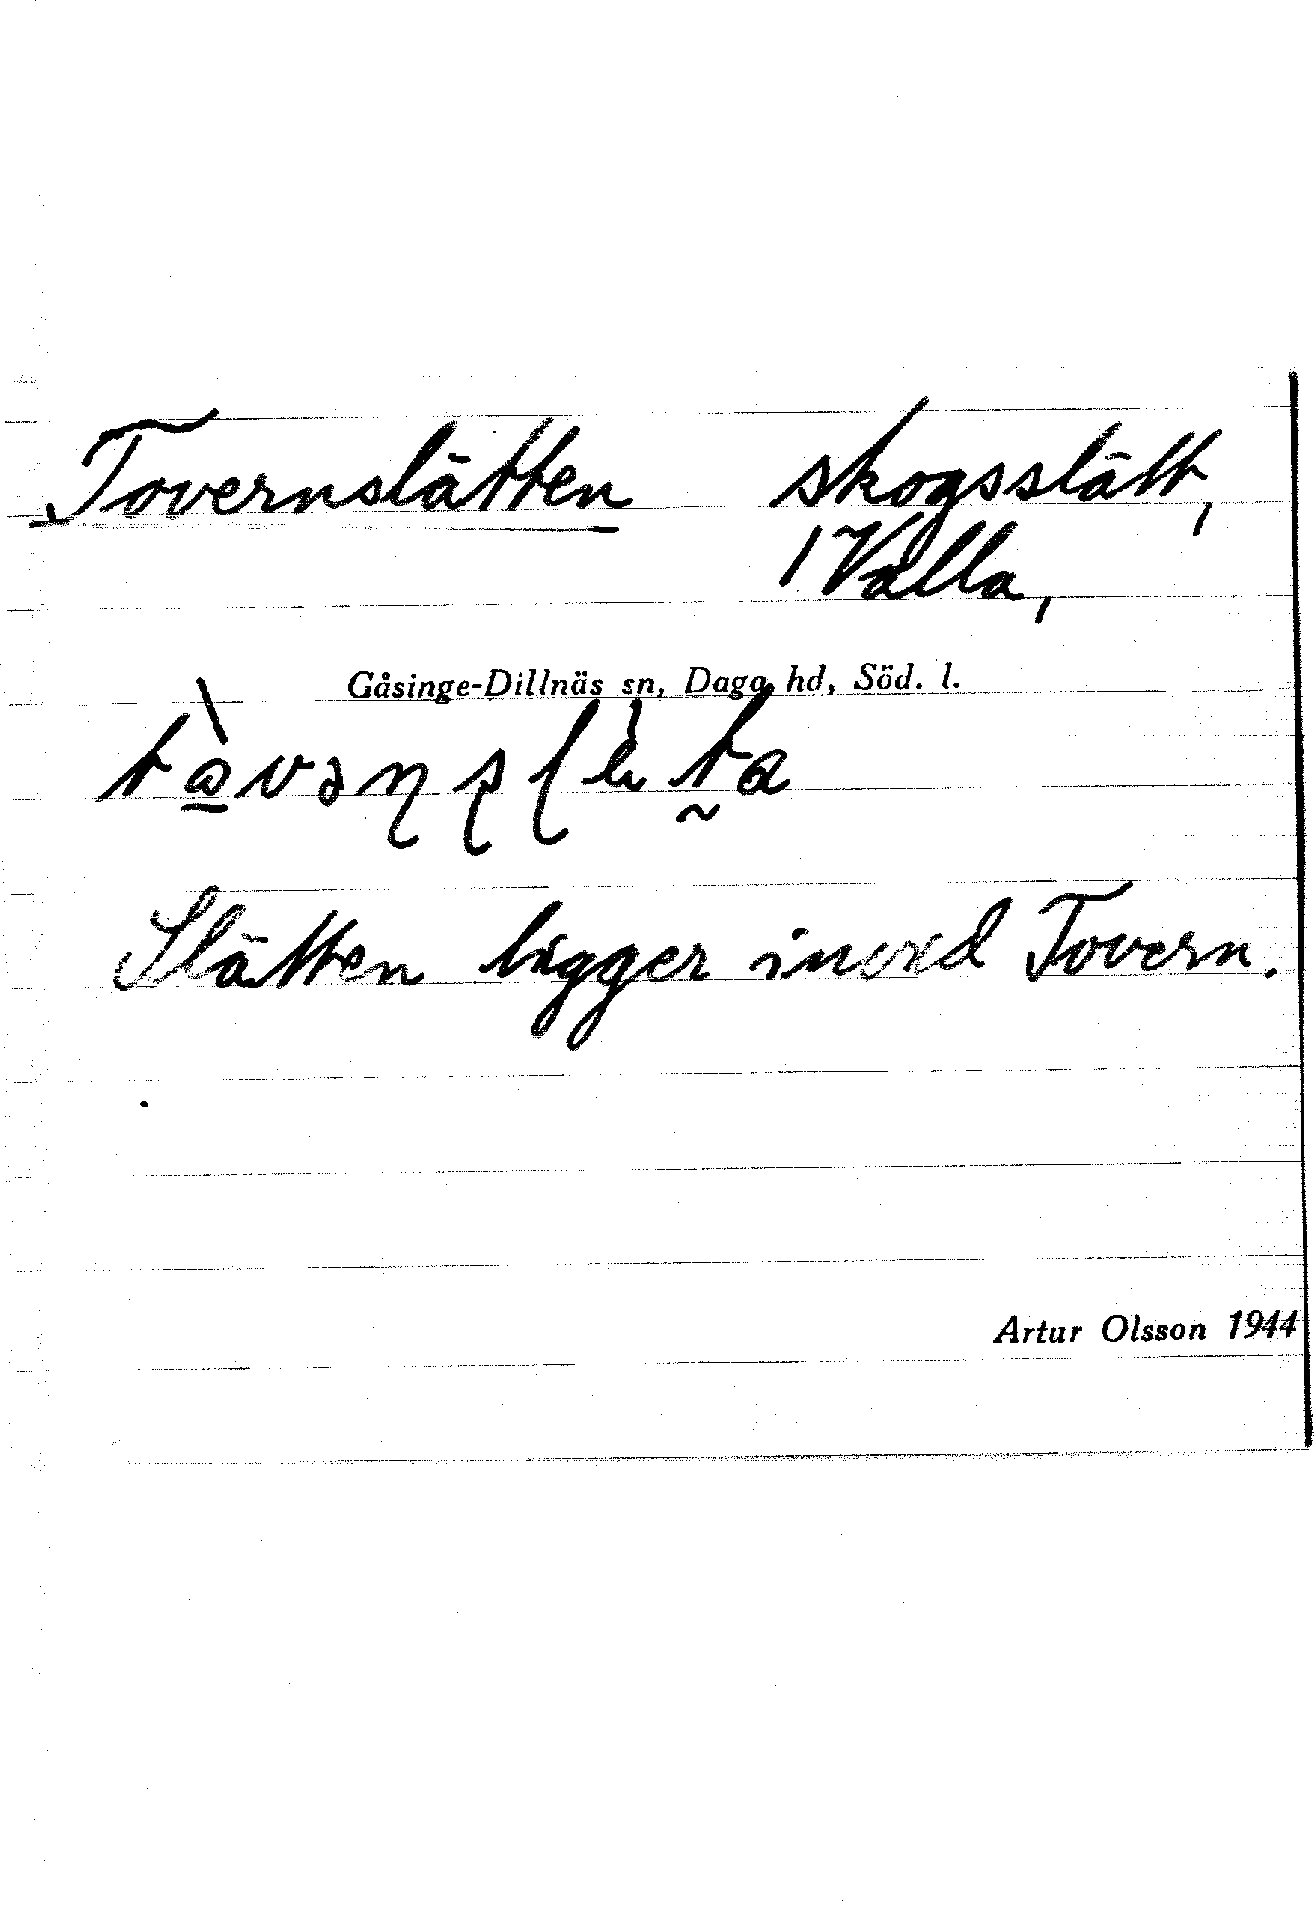 Tovernslätten skogsslätt,
1 Valla,
Gåsinge-Dillnäs sn, Daga hd, Söd. l.
Slätten ligger invid Tovern.
Artur Olsson 1944